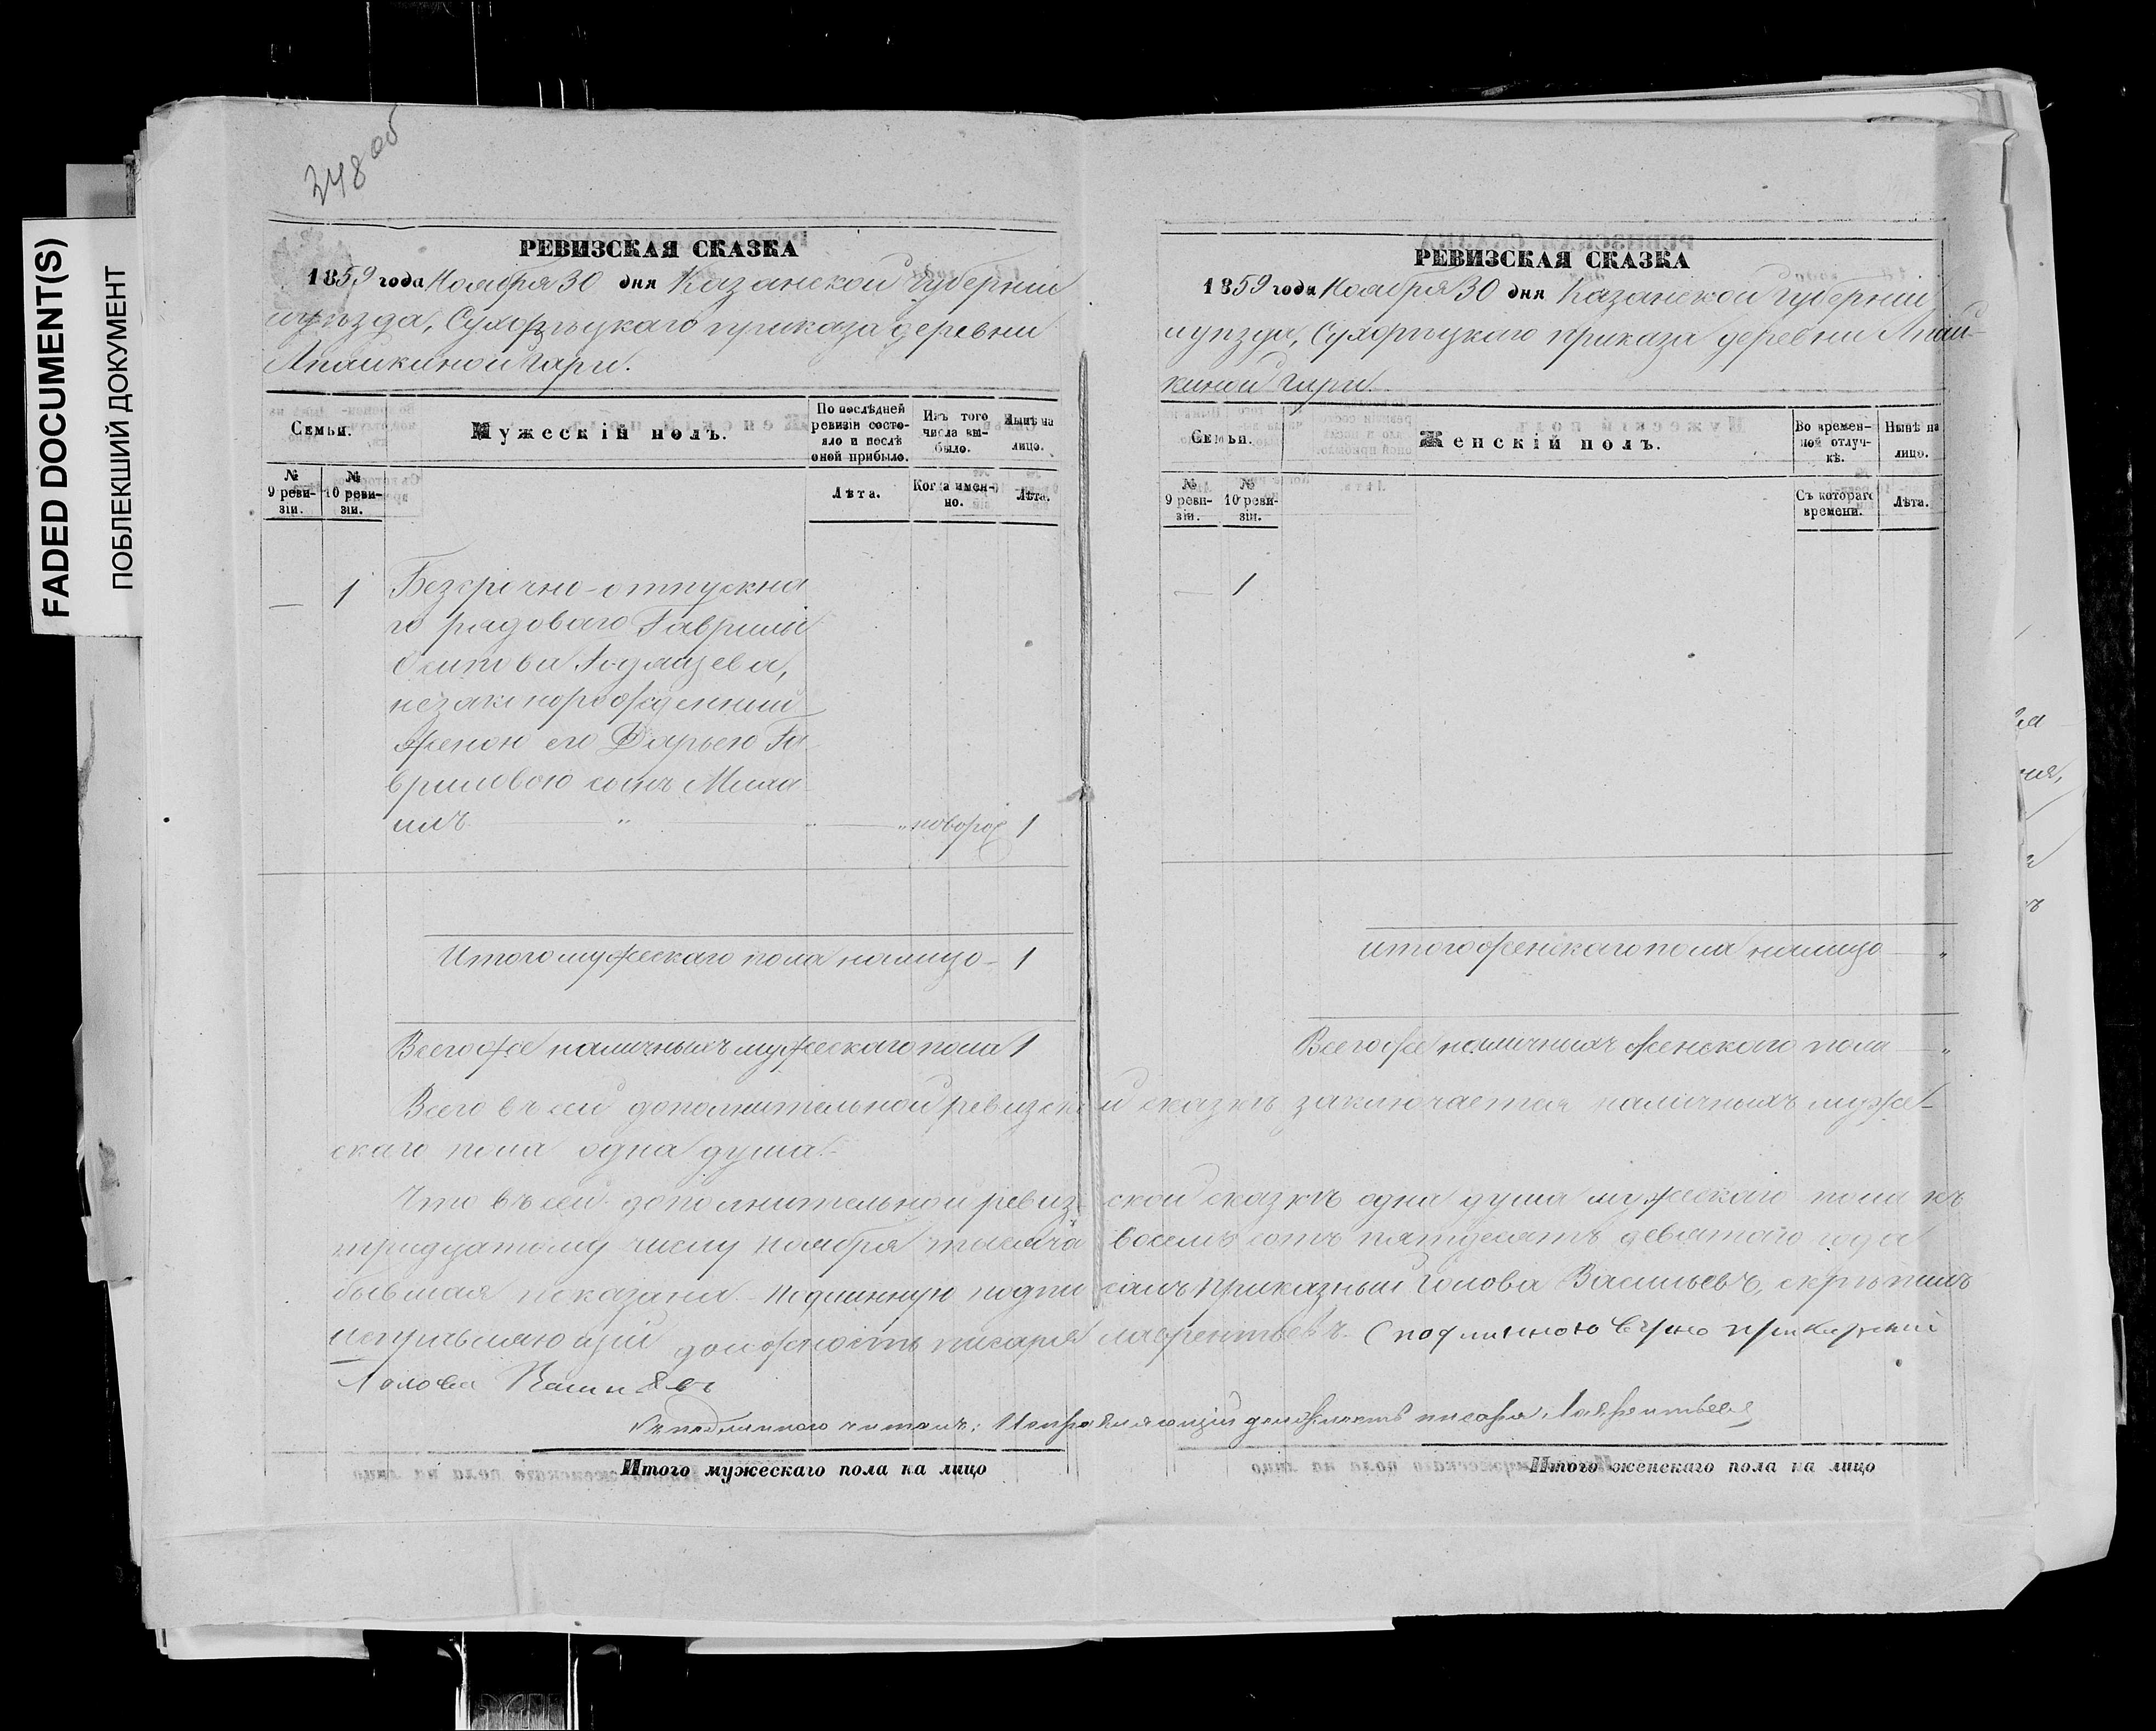 348 об
FADED DOCUMENT(S)
ПОБЛЕКШИЙ ДОКУМЕНТ
РЕВИЗСКАЯ СКАЗКА
1859 года Ноября 30 дня Казанской Губернии
и уѣзда, Сухорѣцкаго приказа деревни
Апайкиной Гари.
Семьи.
Мужескій полъ.
По послѣдней ревизіи состояло и послѣ оной прибыло.
Изъ того числа выбыло.
Нынѣ на лицо.
№ 9 ревизіи.
№ 10 ревизіи.
Лѣта.
Когда именно.
Лѣта.
— 1 Безсрочно-отпускна
го рядоваго Гаврилы
незаконорожденный
женою его Дарьею Га
вриловою сынъ Миха
илъ — „ — „ — „ новорож 1
Итого мужескаго пола налицо - 1
Всего же наличныхъ мужескаго пола 1
РЕВИЗСКАЯ СКАЗКА
1859 года Ноября 30 дня Казанской Губернии
и уѣзда, Сухорѣцкаго приказа деревни Апай-
киной Гари.
Семьи.
Женскій полъ.
Во временной отлучкѣ.
Нынѣ на лицо.
№ 9 ревизіи.
№ 10 ревизіи.
Съ котораго времени.
Лѣта.
— 1
итого женскаго пола налицо — „
Всего же наличныхъ женского пола — „
Всего въ сей дополнительной ревизской сказкѣ заключается наличныхъ муже-
скаго пола одна душа.
Что въ сей дополнительной ревизской сказкѣ одна душа мужескаго пола къ
тридцатому числу Ноября тысяча восемь сотъ пятдесятъ девятаго года
бывшая показана. Подлинную подписалъ Приказный Голова Васильевъ, скрѣпилъ
исправляющій должность писаря Лаврентьевъ. С подлинною вѣрно приказный
Голова
Съ подлиннаго читалъ: Исправляющій должность писаря Лаврентьевъ
Итого мужескаго пола на лицо
Итого женскаго пола на лицо